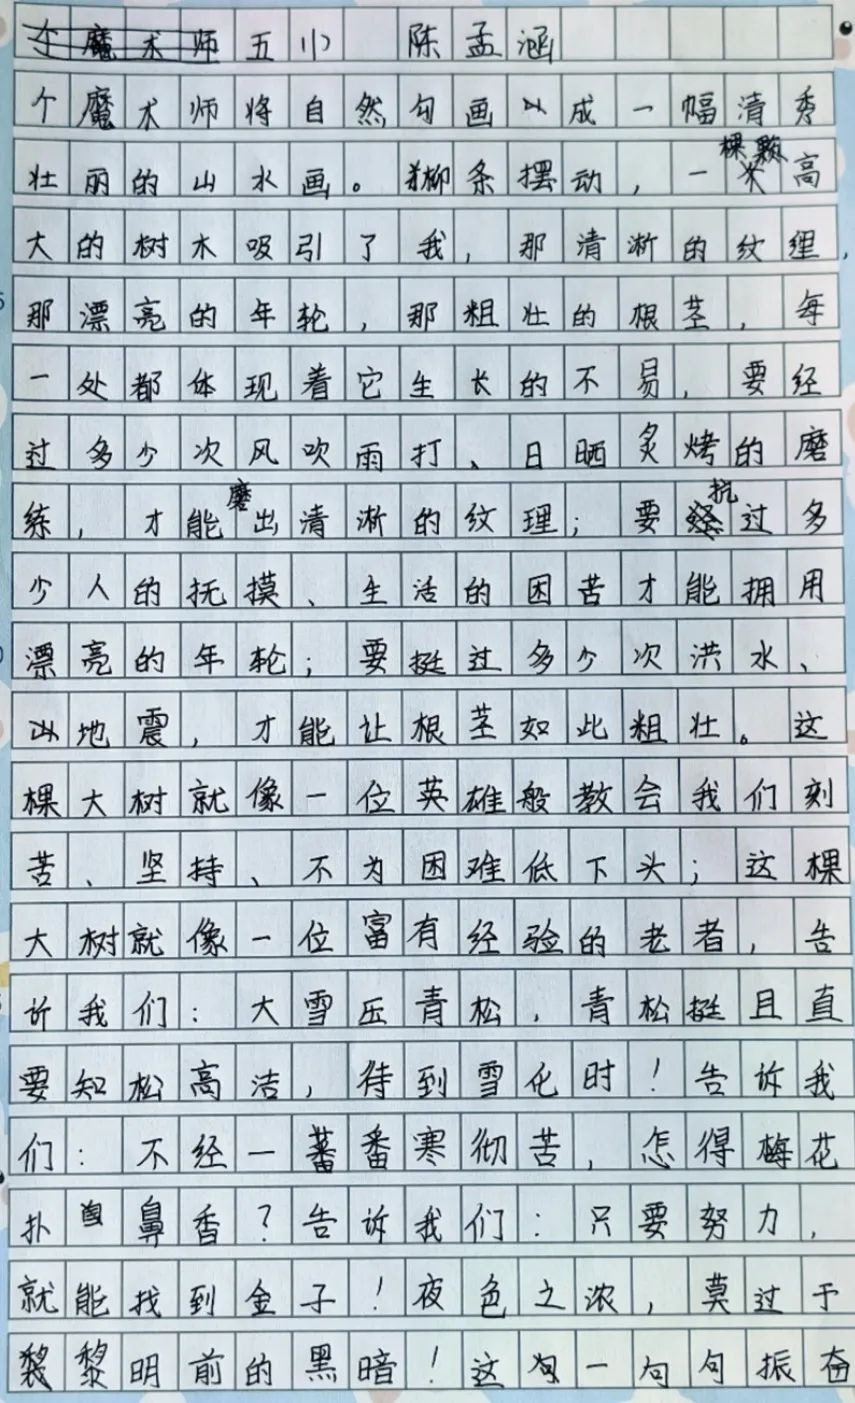 魔术师五(1) 陈孟涵
个魔术师将自然勾画以成一幅清秀
壮丽的山水画。柳条摆动，一棵颗高
大的树木吸引了我，那清淅的纹理，
那漂亮的年轮，那粗壮的根茎，每
一处都体现着它生长的不易，要经
过多少次风吹雨打、日晒炙烤的磨
练，才能磨出清淅的纹理；要抗过多
少人的抚摸、生活的困苦才能拥用
漂亮的年轮；要挺过多少次洪水、
地震，才能让根茎如此粗壮。这
棵大树就像一位英雄般教会我们刻
苦、坚持、不为困难低下头；这棵
大树就像一位富有经验的老者，告
诉我们：大雪压青松，青松挺且直
要知松高洁，待到雪化时！告诉我
们：不经一蕃番寒彻苦，怎得梅花
扑鼻香？告诉我们：只要努力，
就能找到金子！夜色之浓，莫过于
黎明前的黑暗！这一句句振奋